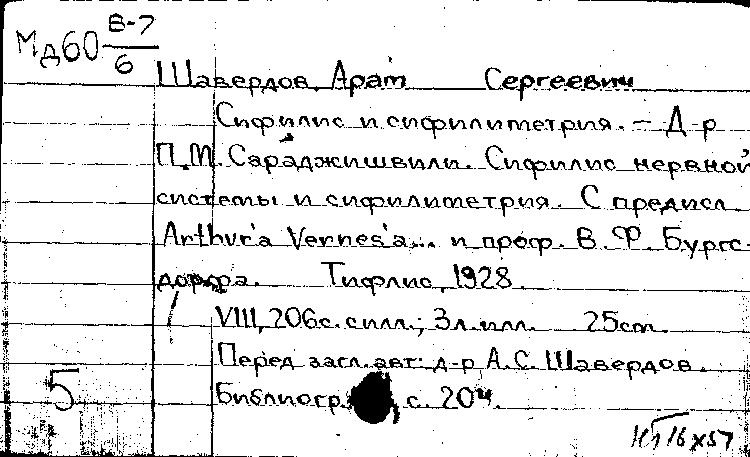 Мд60 В-7/6
Шавердов, Арат Сергеевич
Сифилис и сифилиметрия. — Д-р
П.М. Сараджишвили. Сифилис нервной
системы и сифилиметрия. С предисл
Arthur'a Vernes'a... и проф. В. Ф. Бургс-
дорфа. Тифлис, 1928.
VIII, 206с. силл.; 3л.илл. 25cm.
Перед загл. авт: д-р А.С. Шавердов.
5
Библиогр. с. 204.
16 x 57